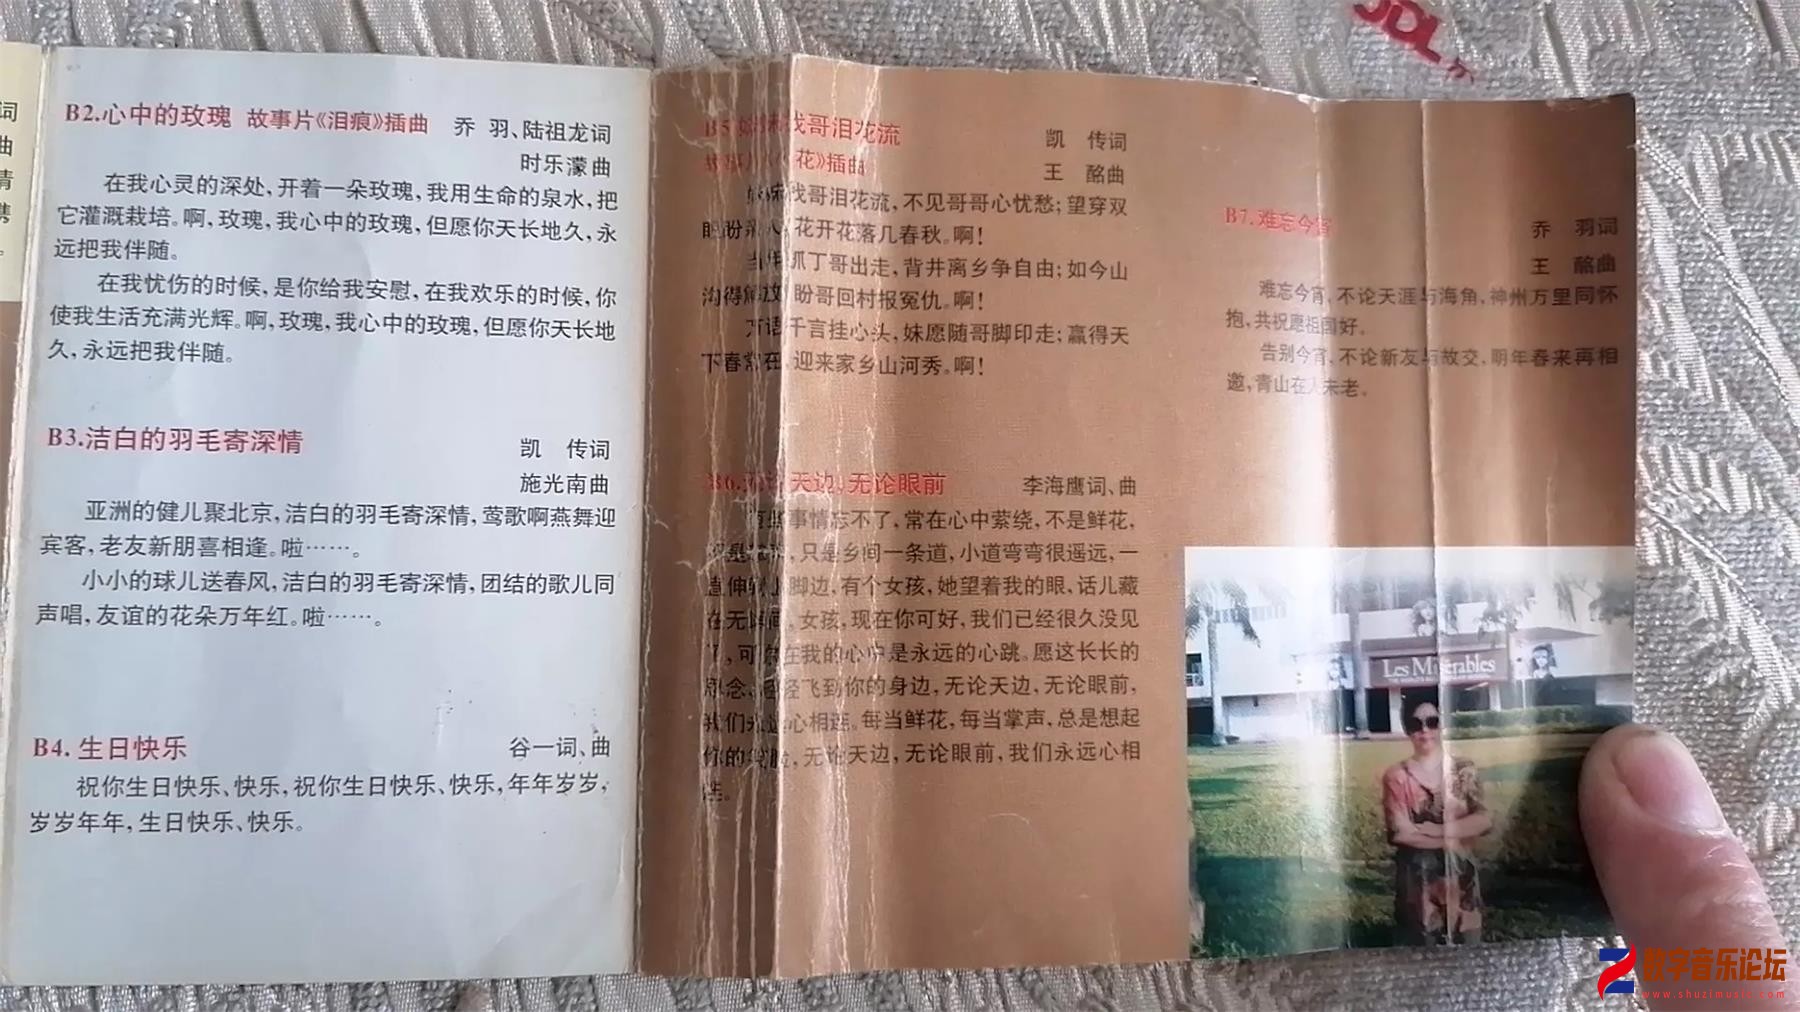 词
曲
情
携
。
B2.心中的玫瑰 故事片《泪痕》插曲 乔 羽、陆祖龙词
时乐濛曲
在我心灵的深处,开着一朵玫瑰,我用生命的泉水,把
它灌溉栽培。啊,玫瑰,我心中的玫瑰,但愿你天长地久,永
远把我伴随。
在我忧伤的时候,是你给我安慰,在我欢乐的时候,你
使我生活充满光辉。啊,玫瑰,我心中的玫瑰,但愿你天长地
久,永远把我伴随。
B3.洁白的羽毛寄深情 凯 传词
施光南曲
亚洲的健儿聚北京,洁白的羽毛寄深情,莺歌啊燕舞迎
宾客,老友新朋喜相逢。啦……。
小小的球儿送春风,洁白的羽毛寄深情,团结的歌儿同
声唱,友谊的花朵万年红。啦……。
B4. 生日快乐 谷一词、曲
祝你生日快乐、快乐,祝你生日快乐、快乐,年年岁岁,
岁岁年年,生日快乐、快乐。
B5 找哥泪花流 凯 传词
花》插曲 王 酩曲
找哥泪花流,不见哥哥心忧愁;望穿双
眼盼 花开花落几春秋。啊!
当年抓丁哥出走,背井离乡争自由;如今山
沟得解放 盼哥回村报冤仇。啊!
万语千言挂心头,妹愿随哥脚印走;赢得天
下春常在,迎来家乡山河秀。啊!
B6. 天边,无论眼前 李海鹰词、曲
有些事情忘不了,常在心中萦绕,不是鲜花,
只是乡间一条道,小道弯弯很遥远,一
直伸 脚边,有个女孩,她望着我的眼,话儿藏
在无 间,女孩,现在你可好,我们已经很久没见
了,可 在我的心中是永远的心跳。愿这长长的
思念,轻轻飞到你的身边,无论天边,无论眼前,
我们永远心相连。每当鲜花,每当掌声,总是想起
你的笑脸,无论天边,无论眼前,我们永远心相
连。
B7. 难忘今宵 乔 羽词
王 酩曲
难忘今宵,不论天涯与海角,神州万里同怀
抱,共祝愿祖国好。
告别今宵,不论新友与故交,明年春来再相
邀,青山在人未老。
Les Misérables
JDL
数字音乐论坛
www.shuzimusic.com